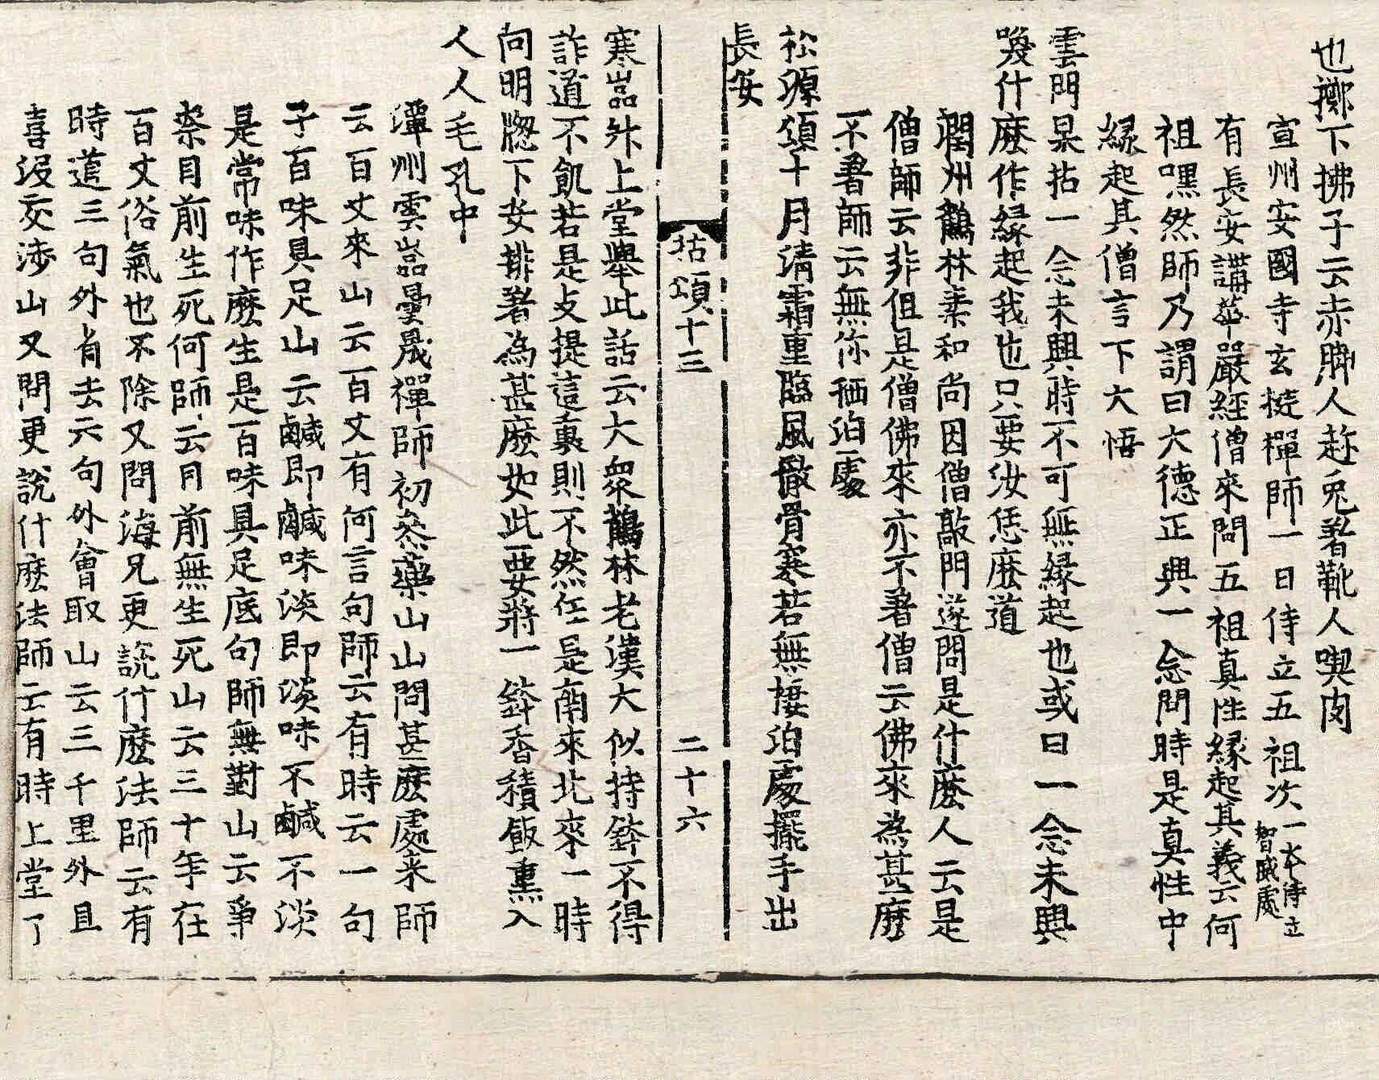 也擲下拂子云赤脚人趂兎著靴人喫肉
宣州安國寺玄挺禪師一日侍立五祖次一本侍立智威處
有長安講華嚴經僧來問五祖真性緣起其義云何
祖嘿然師乃謂曰大德正興一念問時是真性中
緣起其僧言下大悟
雲門杲拈一念未興時不可無緣起也或曰一念未興
喚什麽作緣起我也只要汝恁麽道
潤州鶴林素和尚因僧敲門遂問是什麽人云是
僧師云非但是僧佛來亦不著僧云佛來為甚麽
不著師云無你栖泊處
松源頌十月清霜重臨風徹骨寒若無棲泊處擺手出
長安
拈頌十三 二十六
寒嵓外上堂舉此話云大衆鶴林老漢大似持鉢不得
詐道不飢若是攴提這裏則不然任是南來北來一時
向明牕下安排著為甚麽如此要將一鉢香積飯熏入
人人毛孔中
潭州雲嵓曇晟禪師初叅藥山山問甚麽處来師
云百丈來山云百丈有何言句師云有時云一句
子百味具足山云鹹即鹹味淡即淡味不鹹不淡
是常味作麽生是百味具足底句師無對山云爭
柰目前生死何師云目前無生死山云三十年在
百丈俗氣也不除又問海兄更說什麽法師云有
時道三句外省去六句外會取山云三千里外且
喜沒交涉山又問更說什麽法師云有時上堂了